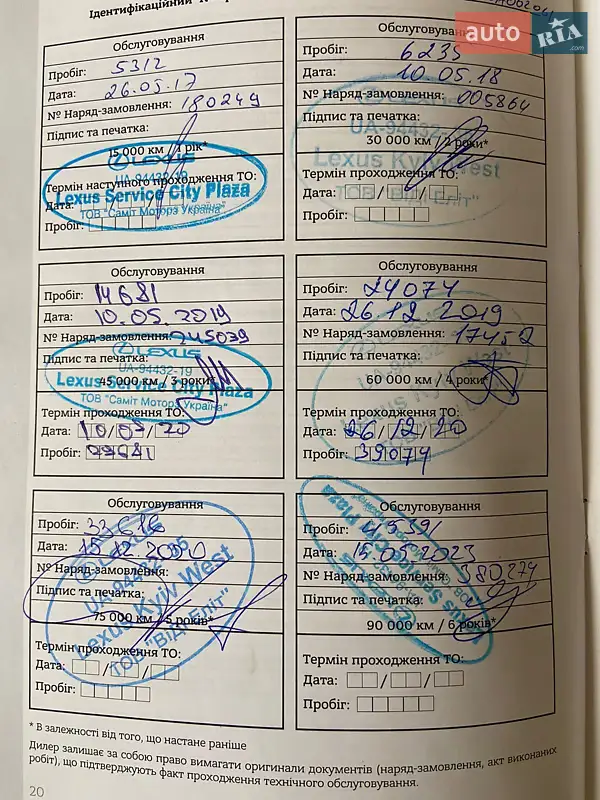 Ідентифікаційний
auto RIA .com
Обслуговування
Пробіг: 5312
Дата: 26.05.17
№ Наряд-замовлення: 180249
Підпис та печатка:
15 000 км / 1 рік*
LEXUS
UA-94432-19
Lexus Service City Plaza
ТОВ "Саміт Моторз Україна"
Термін наступного проходження ТО:
Дата:
Пробіг:
Обслуговування
Пробіг: 6235
Дата: 10.05.18
№ Наряд-замовлення: 005864
Підпис та печатка:
LEXUS
30 000 км / 2 роки*
Lexus Kyiv West
ТОВ "ВІДІ Еліт"
Термін проходження ТО:
Дата:
Пробіг:
Обслуговування
Пробіг: 14681
Дата: 10.05.2019
№ Наряд-замовлення: 245039
Підпис та печатка:
LEXUS
UA-94432-19
Lexus Service City Plaza
45 000 км / 3 роки*
ТОВ "Саміт Моторз Україна"
Термін проходження ТО:
Дата: 10/05/20
Пробіг:
Обслуговування
Пробіг: 24074
Дата: 26.12.2019
№ Наряд-замовлення: 17452
Підпис та печатка:
60 000 км / 4 роки*
Термін проходження ТО:
Дата: 26/12/20
Пробіг: 39074
Обслуговування
Пробіг: 33616
Дата: 15.12.2020
№ Наряд-замовлення:
Підпис та печатка:
Lexus Kyiv West
75 000 км / 5 років*
ТОВ "ВІДІ Еліт"
Термін проходження ТО:
Дата:
Пробіг:
Обслуговування
Пробіг: 41539
Дата: 15.05.2023
№ Наряд-замовлення: 380274
Підпис та печатка:
90 000 км / 6 років*
Термін проходження ТО:
Дата:
Пробіг:
* В залежності від того, що настане раніше
Дилер залишає за собою право вимагати оригинали документів (наряд-замовлення, акт виконаних
робіт), що підтверджують факт проходження технічного обслуговування.
20